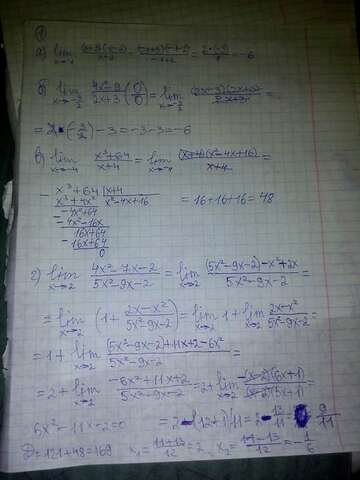 ①
а) lim x→
б) lim x→-3/2 (4x²-9)/(2x+3) (0/0) = lim x→-3/2 (2x-3)(2x+3)/(2x+3) =
= 2·(-3/2)-3 = -3-3 = -6
в) lim x→-4 (x³+64)/(x+4) = lim x→-4 (x+4)(x²-4x+16)/(x+4) =
- x³+64 | x+4
x³+4x² | x²-4x+16 = 16+16+16 = 48
-4x²+64
-4x²-16x
16x+64
16x+64
0
г) lim x→2 (4x²-7x-2)/(5x²-9x-2) = lim x→2 ((5x²-9x-2)-x²+2x)/(5x²-9x-2) =
= lim x→2 (1+(2x-x²)/(5x²-9x-2)) = lim x→2 1+lim x→2 (2x-x²)/(5x²-9x-2) =
= 1+lim x→2 ((5x²-9x-2)+11x+2-6x²)/(5x²-9x-2) =
= 2+lim x→2 (-6x²+11x+2)/(5x²-9x-2) = 2+lim x→2 -(x-2)(6x+1)/(x-2)(5x+1) =
6x²-11x-2=0 = 2-(12+1)/11 = 2- 9/11
D=121+48=169 x₁=(11+13)/12=2, x₂=(11-13)/12=-1/6